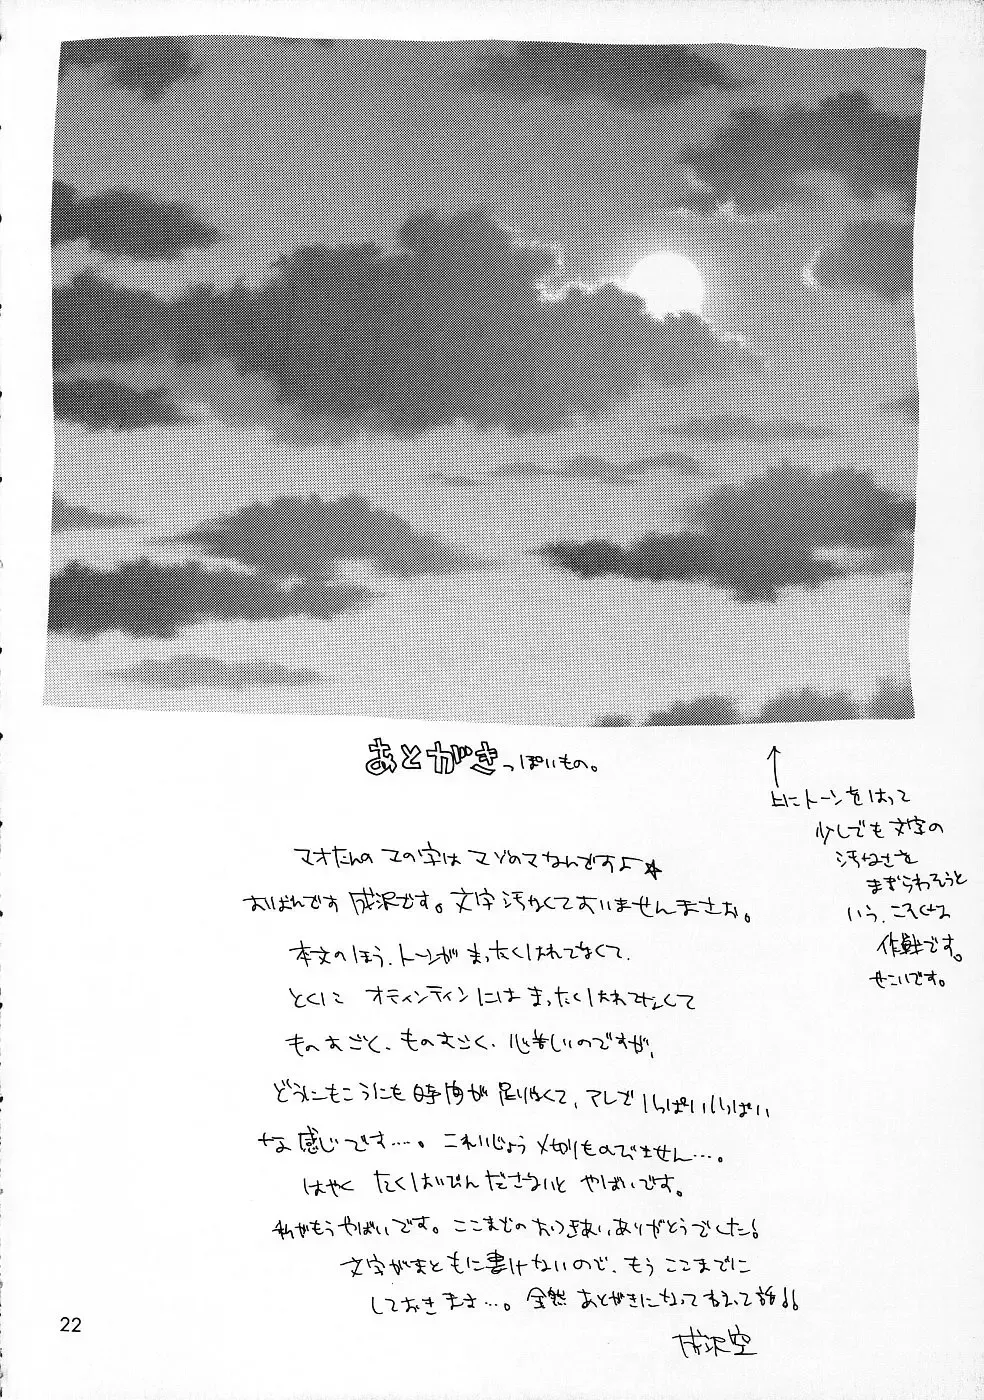 あとがきっぽいもの。
↑
上にトーンをはって
少しでも文字の
汚なさを
まぎらわそうと
いう、こそくな
作戦です。
せこいです。
マオたんのマの字はマゾのマなんですよ☆
おばんです成沢です。文字汚なくてすいませんまさお。
本文のほう、トーンがまったくはれてなくて、
とくに オティンティンにはまったくはれてなくて
ものすごく、ものすごく、心苦しいのですが、
どうにもこうにも時間が足りなくて、アレでいっぱいいっぱい
な感じです…。これいじょう〆切りものびません…。
はやく たくはいびんださないと やばいです。
私がもうやばいです。ここまでのおつきあい、ありがとうでした!
文字がまともに書けないので、もうここまでに
しておきます…。全然あとがきになってねえって話!!
成沢空
22